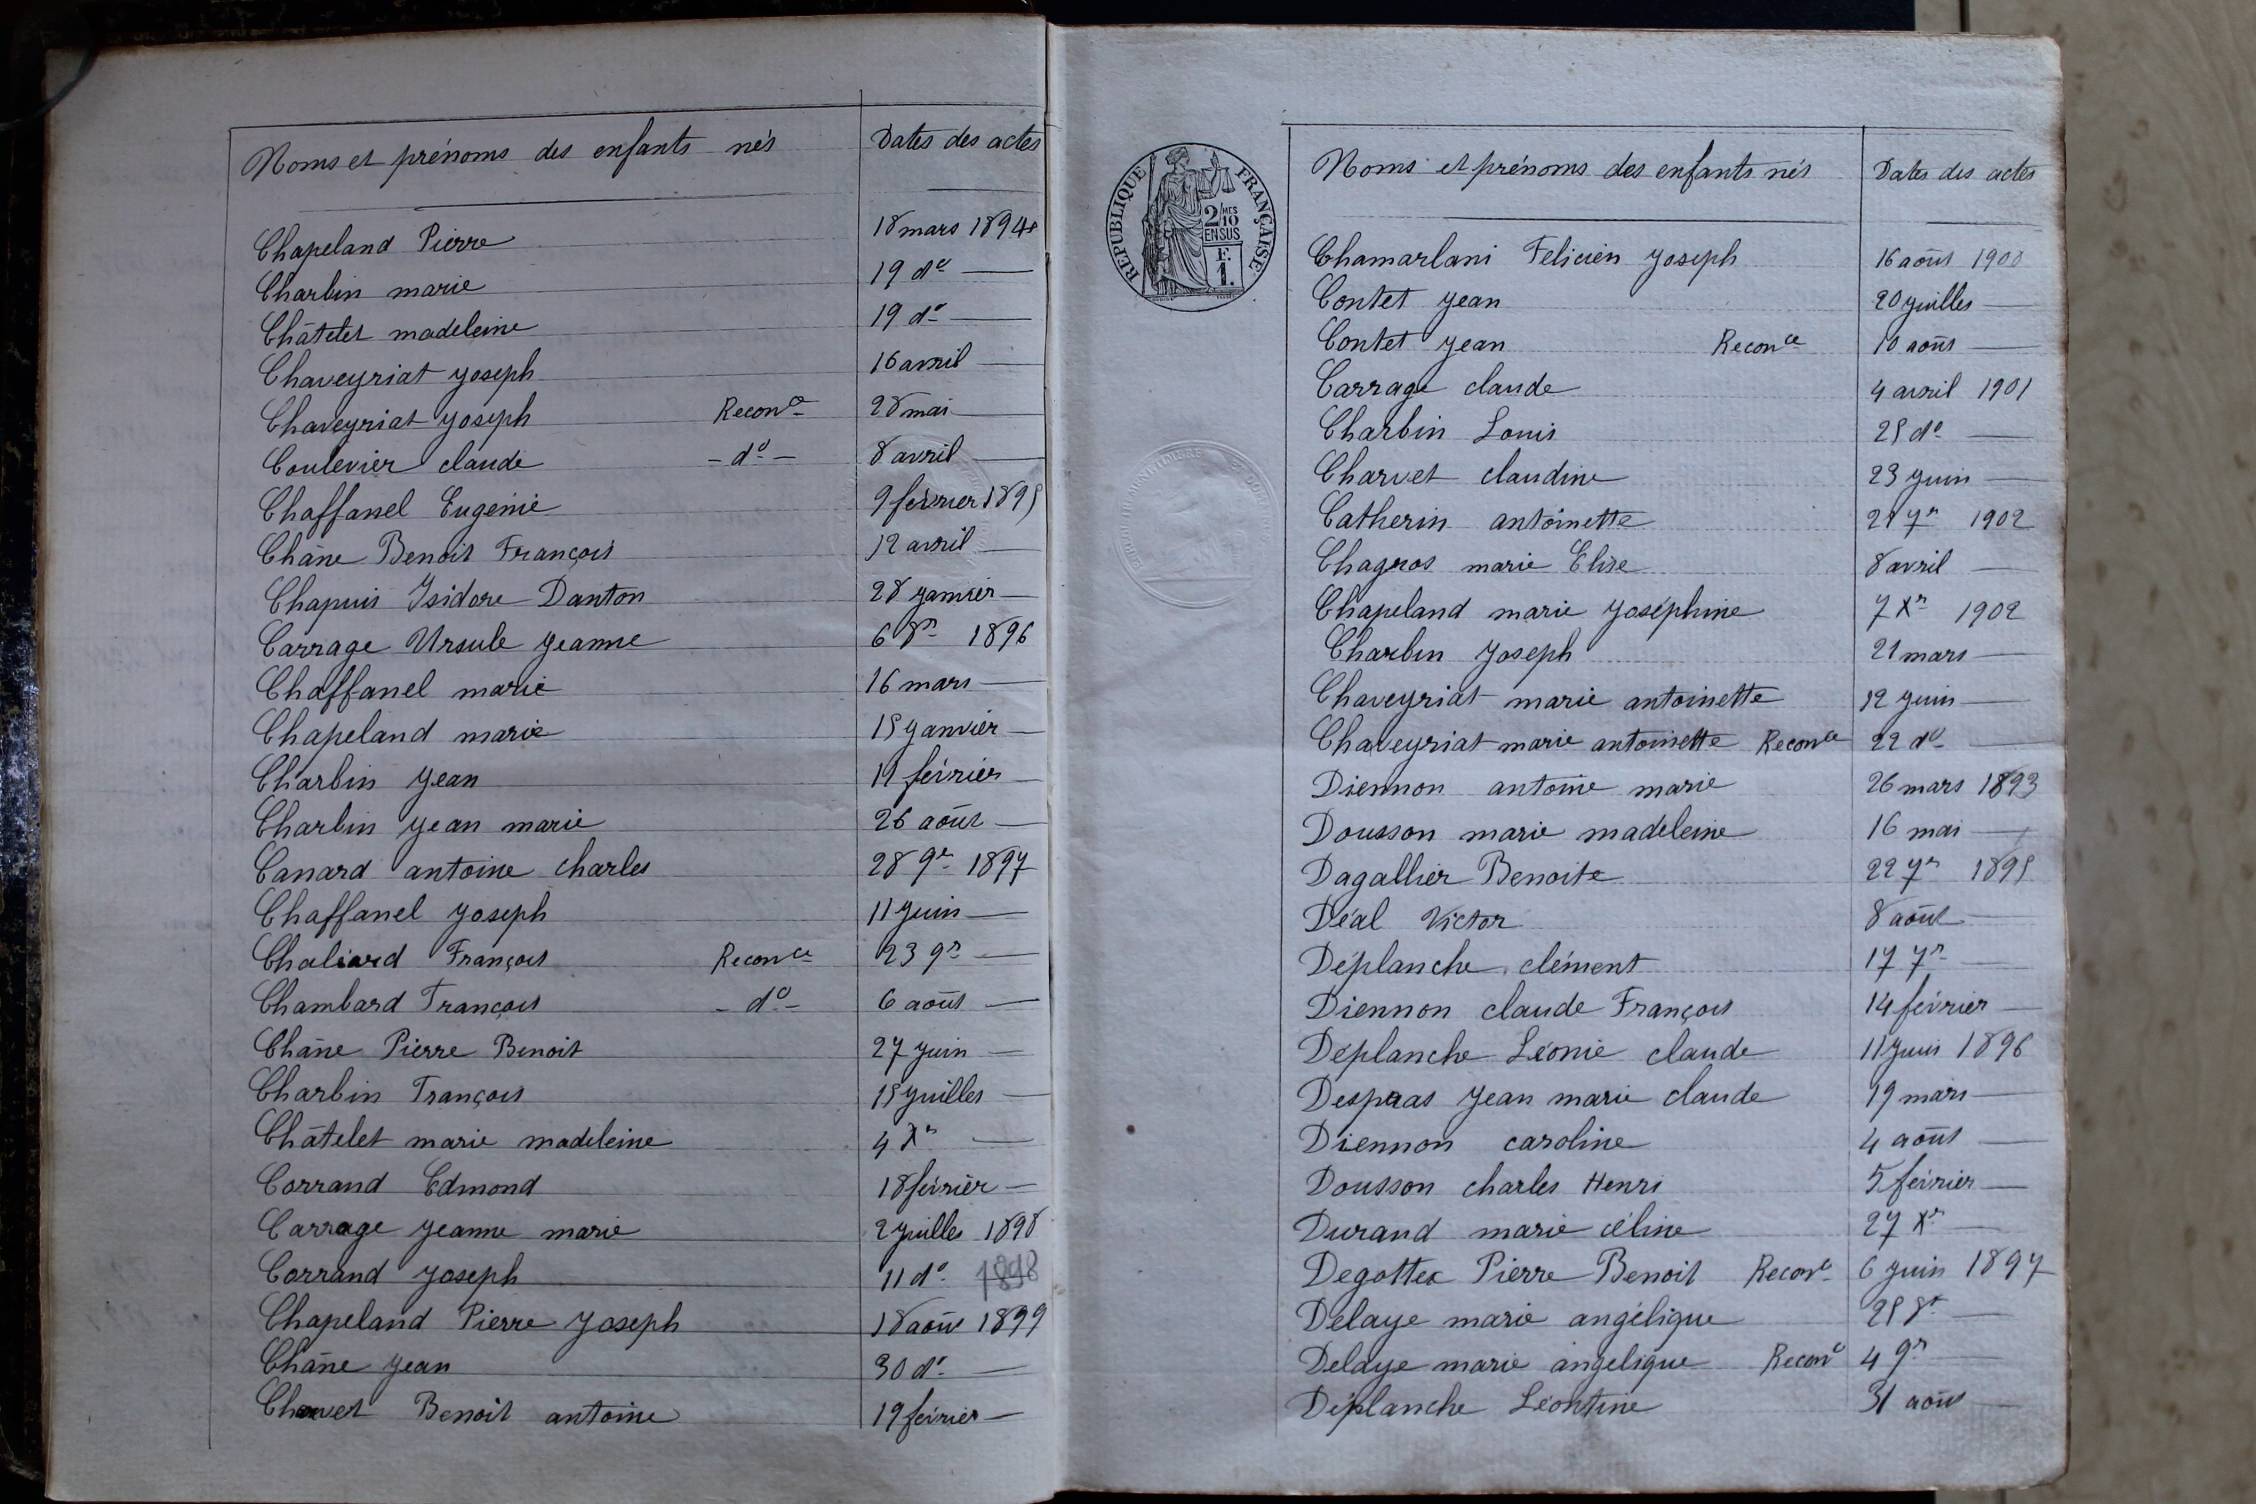 Noms et prénoms des enfants nés Dates des actes
Chapeland Pierre 18 mars 1894
Charbin marie 19 do
Châtelet madeleine 19 do
Chaveyriat Joseph 16 avril
Chaveyriat Joseph Reconce 28 mai
Coulevier claude - do - 8 avril
Chaffanel Eugénie 9 février 1895
Châne Benoit François 12 avril
Chapuis Isidore Danton 28 janvier
Carrage Ursule Jeanne 6 8re 1896
Chaffanel marie 16 mars
Chapeland marie 15 janvier
Charbin Jean 19 février
Charbin Jean marie 26 août
Canard antoine charles 28 9re 1897
Chaffanel Joseph 11 juin
Chaliard François Reconce 23 9re
Chambard François - do - 6 août
Châne Pierre Benoit 27 juin
Charbin François 15 juillet
Châtelet marie madeleine 4 Xre
Corrand Edmond 18 février
Carrage Jeanne marie 2 juillet 1898
Corrand Joseph 11 do 1898
Chapeland Pierre Joseph 18 août 1899
Châne Jean 30 do
Benoit antoine 19 février
REPUBLIQUE FRANÇAISE
2/MES
10
EN SUS
F.
1.
Noms et prénoms des enfants nés Dates des actes
Chamarlani Felicien Joseph 16 août 1900
Contet Jean 20 juillet
Contet Jean Reconce 10 août
Carrage claude 4 avril 1901
Charbin Louis 25 do
Charvet claudine 23 juin
Catherin antoinette 21 7re 1902
Chagros marie Elise 8 avril
Chapeland marie Joséphine 7 Xre 1902
Charbin Joseph 21 mars
Chaveyriat marie antoinette 12 juin
Chaveyriat marie antoinette Reconce 22 do
Diennon antoine marie 26 mars 1893
Dousson marie madeleine 16 mai
Dagallier Benoite 22 7re 1895
Déal Victor 8 août
Déplanche clément 17 7re
Diennon claude François 14 février
Déplanche Léonie claude 11 juin 1896
Despras Jean marie claude 19 mars
Diennon caroline 4 août
Dousson charles Henri 5 février
Durand marie céline 27 Xre
Degottex Pierre Benoit Reconce 6 juin 1897
Delaye marie angélique 25 8re
Delaye marie angelique Reconce 4 9re
Déplanche Léontine 31 août